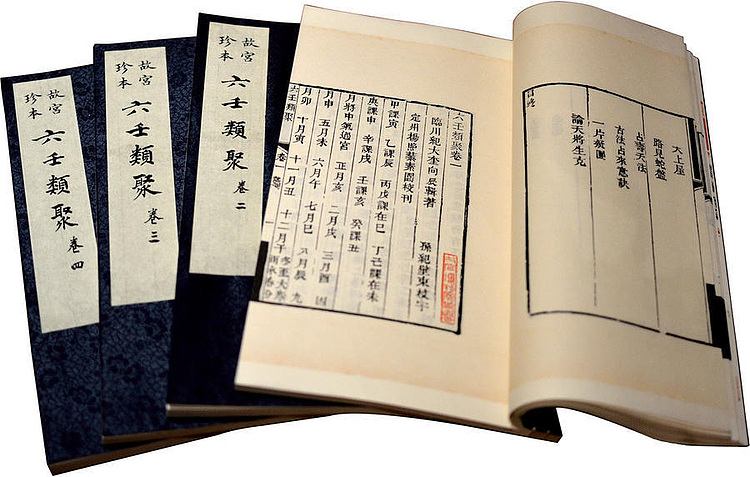 故宮
珍本
六壬類聚
卷四
故宮
珍本
六壬類聚
卷三
故宮
珍本
六壬類聚
卷二
天上屋
路見蛇盤
占壽夭法
古法占來意訣
一片斑圖
論天將生克
六壬類聚卷一
臨川紀大奎向辰輯著
定州楊照藜素園校刊
甲課寅 乙課辰 丙戊課在巳 丁己課在未
庚課申 辛課戌 壬課亥 癸課丑
月將中氣過宮 正月亥 二月戌 三月酉 四
月申 五月未 六月午 七月巳 八月辰 九
月卯 十月寅 十一月丑 十二月子
六壬類聚 卷一